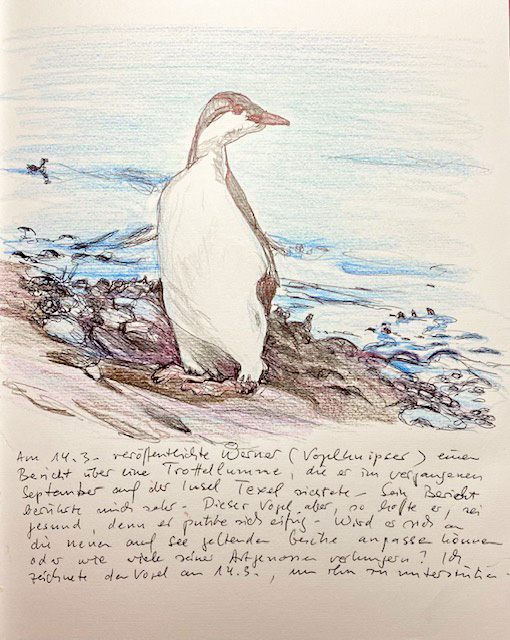 Am 14.3. veröffentlichte Werner (Vogelknipser) einen
Bericht über eine Trottellumme, die er im vergangenen
September auf der Insel Texel sichtete – Sein Bericht
berührte mich sehr – Dieser Vogel aber, so hoffe er, sei
gesund, denn er putzte sich eifrig – Wird er sich an
die neuen auf See geltenden anpassen können
oder wie viele seiner Artgenossen verhungern? Ich
zeichnete den Vogel am 14.3., um ihn zu unterstützen –